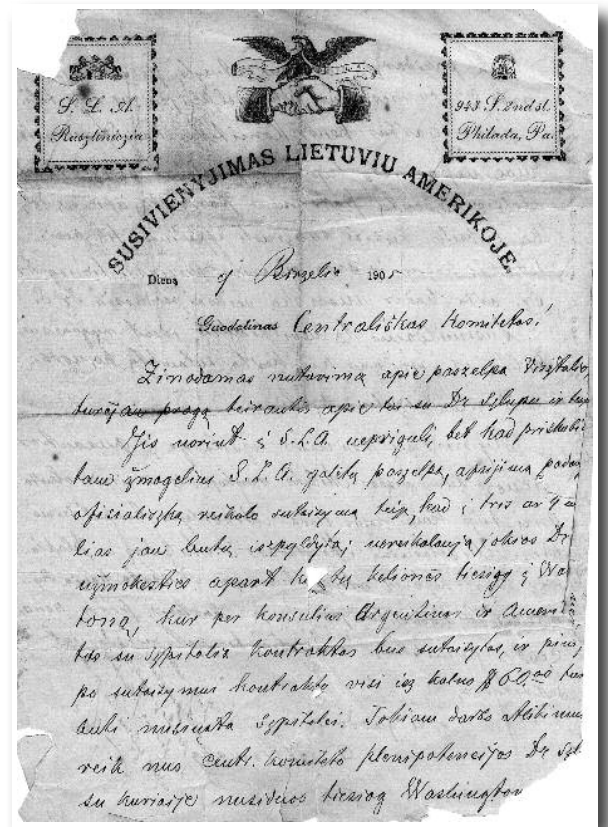 S. L. A.
Rasztiniczia
943 S. 2nd st.
Philada, Pa.
SUSIVIENYJIMAS LIETUVIU AMERIKOJE,
Diena 9 Birzelio 1905
Guodotinas Centraliszkas Komitetas!
Zinodamas nutarimą apie paszelpą
turėjau progą teirautis apie tai su Dr
Jis norint į S.L.A. nepriguli, bet kad
tam žmogeliui S.L.A. galėtų paszelpą,
oficialiszką reikalo sutaisymą teip, kad į tris ar 4
lias jau butų iszpyldyta; nereikalauja jokios
užmokesties apart kasztų kelionės tiesiog į Wa
toną, kur per konsulius Argentinos ir Ameri
tas su szpitolia kontraktas bus sutaisytas, ir
po sutaisymui kontrakto visi isz kalno $60.00
buti nusiusta szpitolei. Tokiam darbo atlikimui
reik nuo centr. komiteto plenipotencijos Dr
su kuriaja nusiduos tiesiog Washington